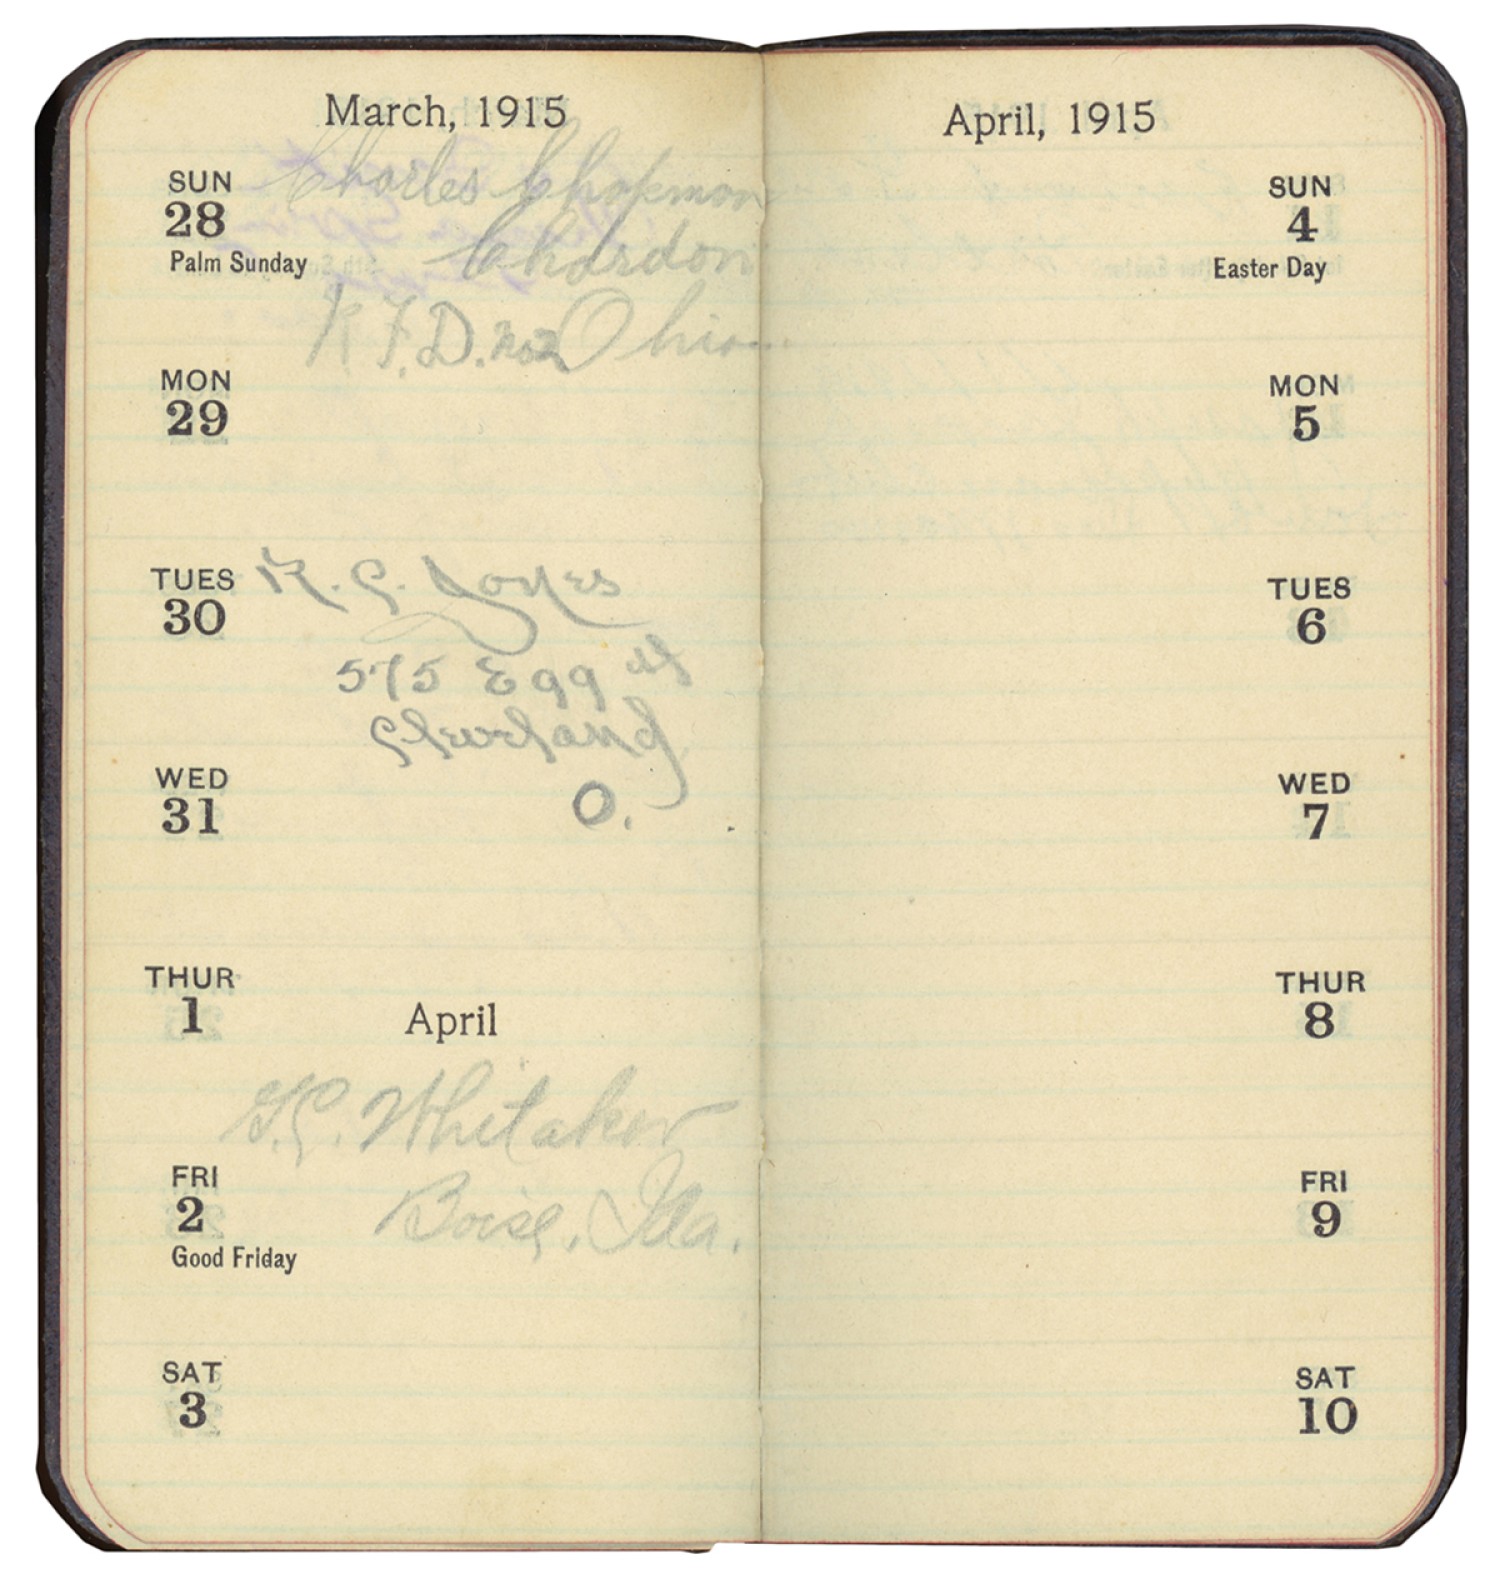 March, 1915
SUN
28
Palm Sunday
Charles Chapman
Chardon
R.F.D. No 2 Ohio
MON
29
TUES
30
R. G. Jones
575 E 99 St
Cleveland
O.
WED
31
THUR
1
April
Whitaker
Boise, Ida.
FRI
2
Good Friday
SAT
3
April, 1915
SUN
4
Easter Day
MON
5
TUES
6
WED
7
THUR
8
FRI
9
SAT
10